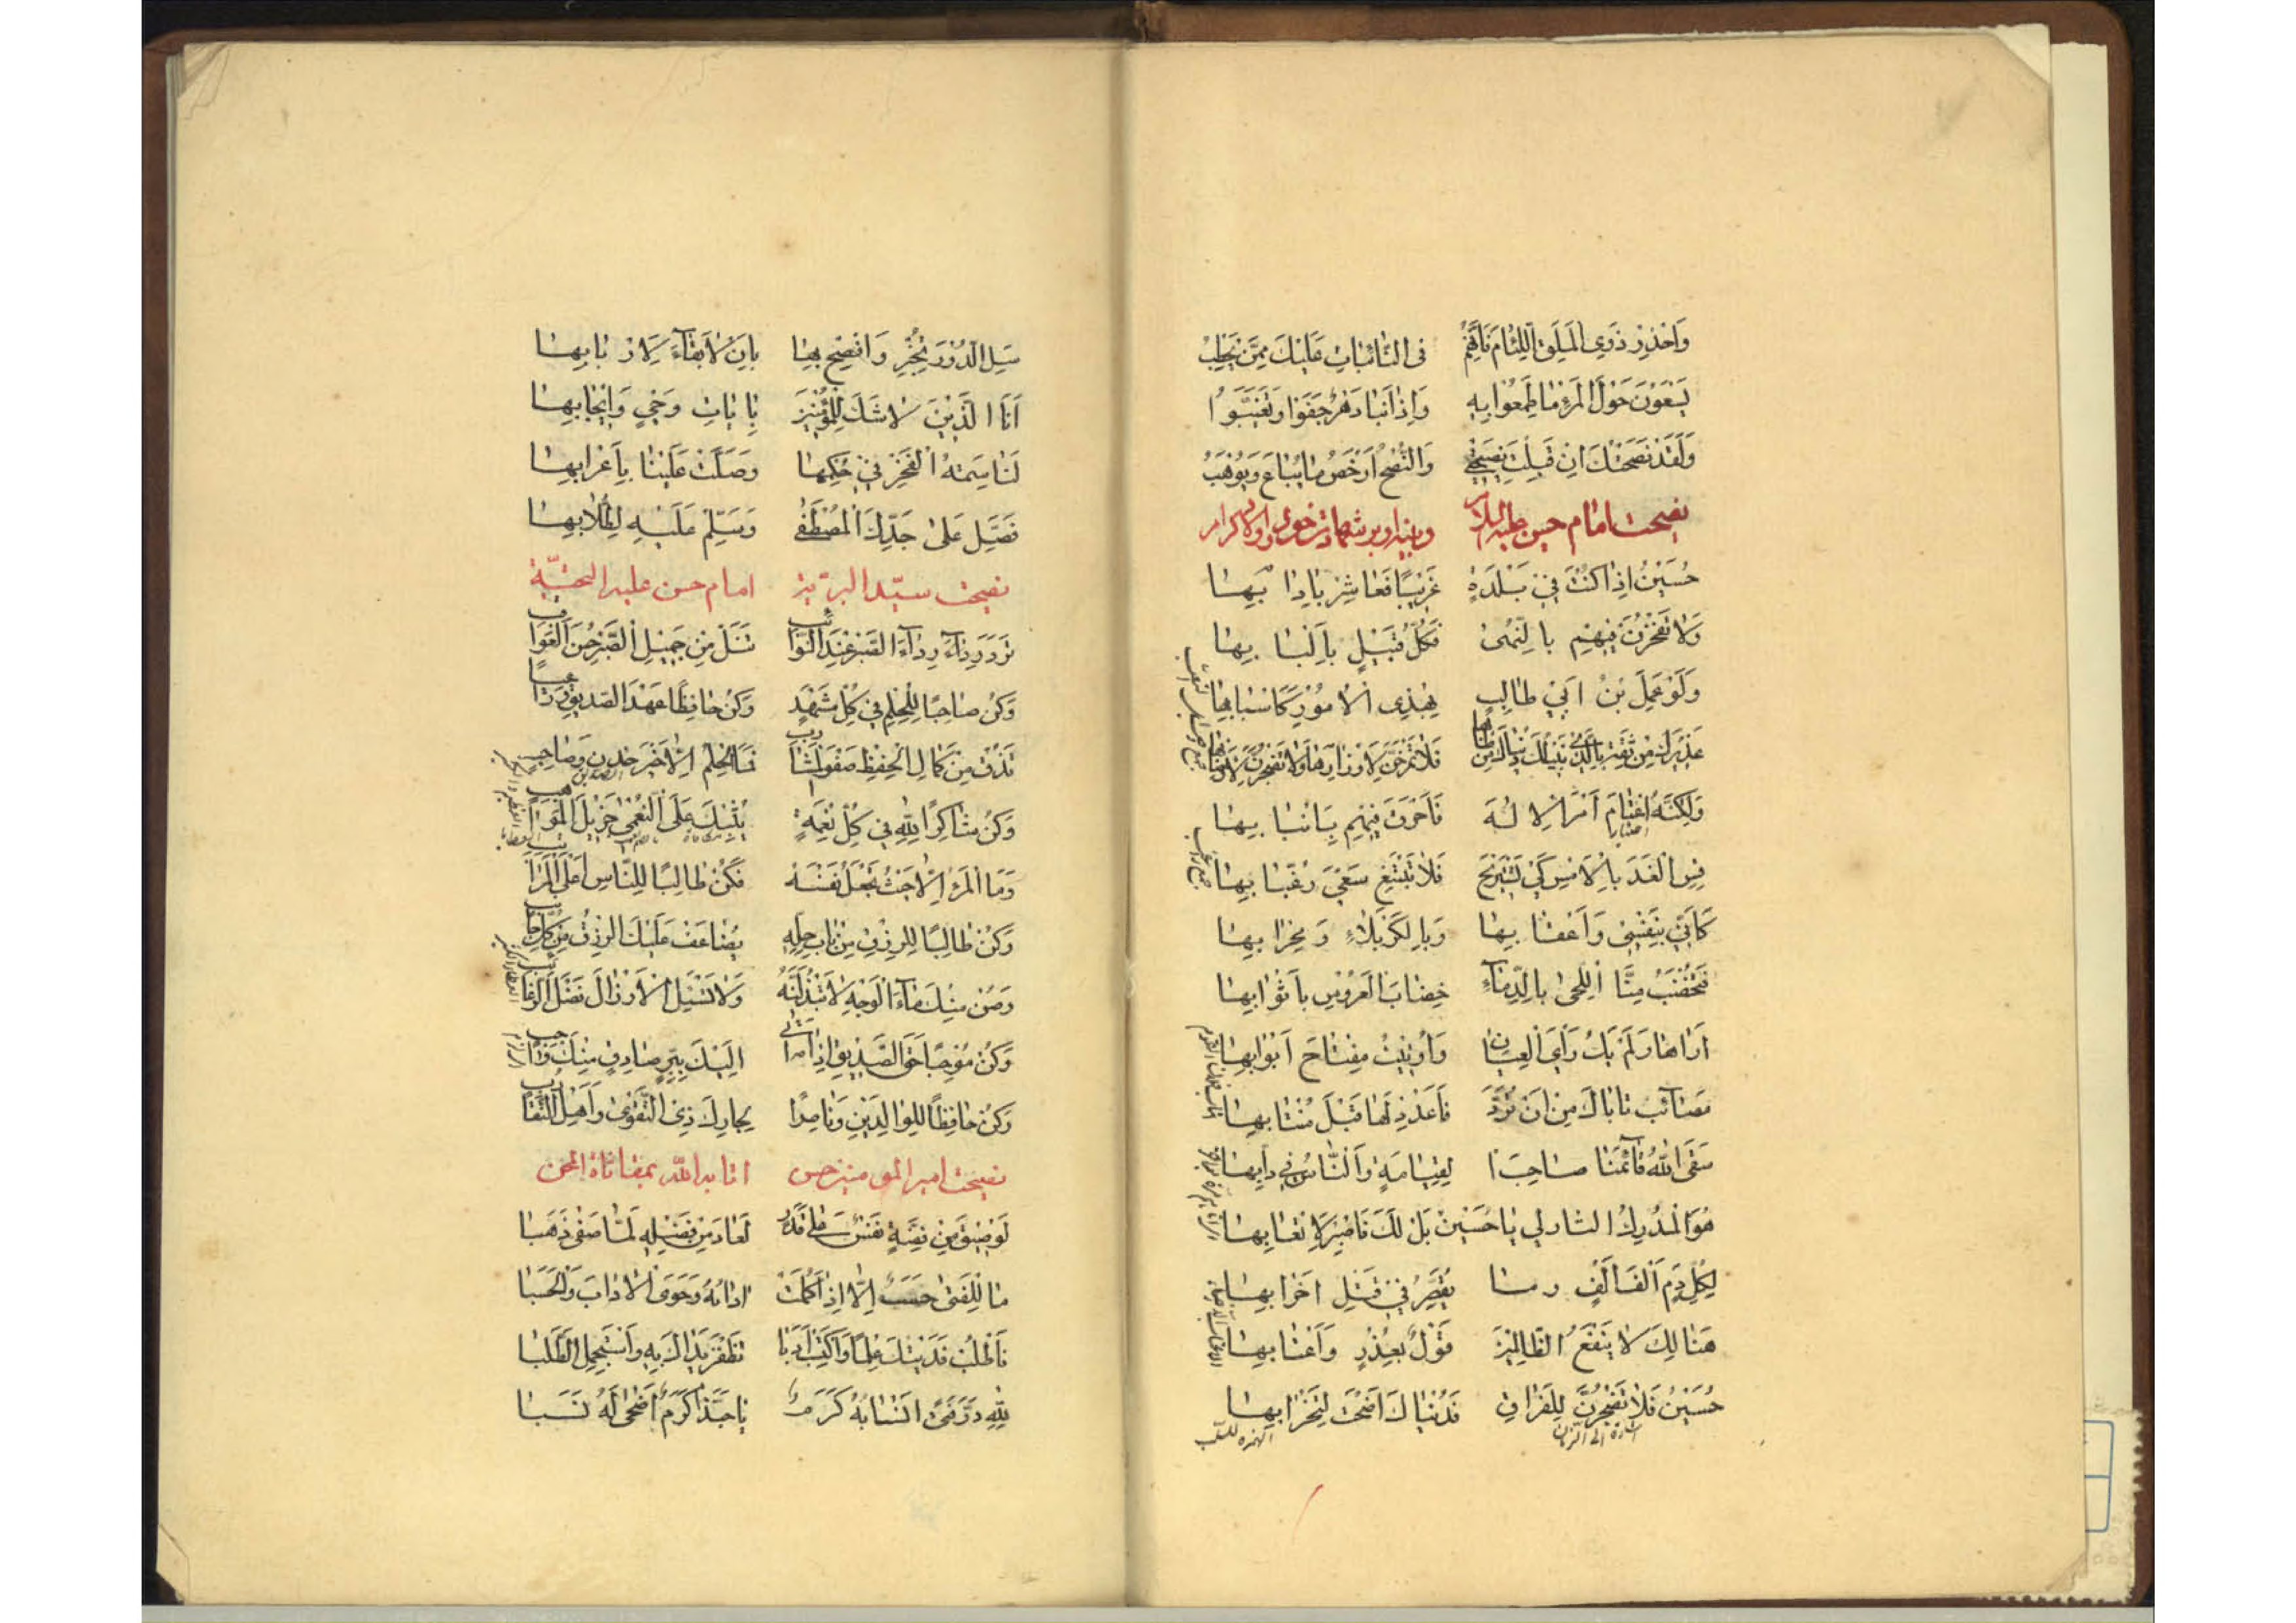 وَاحْذَرْ ذَوِی الْمَلَقِ اللِّئَامَ فَاِنَّهُمْ فِی النَّائِبَاتِ عَلَیْكَ مِمَّنْ یَخْطِبُ
یَسْعَوْنَ حَوْلَ الْمَرْءِ مَا طَمِعُوا بِهِ وَاِذَا نَبَا دَهْرٌ جَفَوْا وَتَغَیَّبُوا
وَلَقَدْ نَصَحْتُكَ اِنْ قَبِلْتَ نَصِیحَتِی وَالنُّصْحُ اَرْخَصُ مَا یُبَاعُ وَیُوهَبُ
نصیحت امام حسین علیه السلام
حُسَیْنُ اِذَا كُنْتَ فِی بَلْدَةٍ غَرِیبًا فَعَاشِرْ بِآدَابِهَا
وَلَا تَفْخَرَنْ فِیهِمْ بِالنُّهٰی فَكُلُّ قَبِیلٍ بِاَلْبَابِهَا
وَلَوْ عَمِلَ بْنُ اَبِی طَالِبٍ بِهٰذِی الْاُمُورِ كَاَسْبَابِهَا
وَلٰكِنَّهُ اعْتَامَ اَمْرَ الْاِلٰهِ فَاَحْرَقَ فِیهِمْ بِاَنْیَابِهَا
عَذِیرَكَ مِنْ ثِقَةٍ بِالَّذِی یُنِیلُكَ دُنْیَاكَ مِنْ طَابِهَا فَلَا تَمْرَحَنَّ لِاَوْزَارِهَا وَلَا تَضْجَرَنَّ لِاَوْصَابِهَا
قِسِ الْغَدَ بِالْاَمْسِ كَیْ تَسْتَرِیحَ فَلَا تَبْتَغِی سَعْیَ رُغَّابِهَا
كَاَنِّی بِنَفْسِی وَاَعْقَابِهَا وَبِالْكَرْبَلَاءِ وَمِحْرَابِهَا
فَتُخْضَبُ مِنَّا اللِّحٰی بِالدِّمَاءِ خِضَابَ الْعَرُوسِ بِاَثْوَابِهَا
اَرَاهَا وَلَمْ یَكُ رَأْیَ الْعِیَانِ وَاُوتِیتُ مِفْتَاحَ اَبْوَابِهَا
مَصَائِبُ تَابَاكَ مِنْ اَنْ تُرَدَّ فَاَعْدِدْ لَهَا قَبْلَ مُنْتَابِهَا
سَقَی اللّٰهُ قَائِمَنَا صَاحِبَ الْقِیَامَةِ وَالنَّاسُ فِی دَأْبِهَا
هُوَ الْمُدْرِكُ الثَّارَ لِی یَا حُسَیْنُ بَلْ لَكَ فَاصْبِرْ لِاَتْعَابِهَا
لِكُلِّ دَمٍ اَلْفُ اَلْفٍ وَمَا یُقَصِّرُ فِی قَتْلِ اَحْزَابِهَا
هُنَالِكَ لَا یَنْفَعُ الظَّالِمِینَ قَوْلٌ بِعُذْرٍ وَاَعْتَابِهَا
حُسَیْنُ فَلَا تَضْجَرَنَّ لِلْفِرَاقِ فَدُنْیَاكَ اَضْحَتْ لِتَخْرَابِهَا
سَلِ الدُّورَ تُخْبِرْ وَافْصِحْ بِهَا بِاَنْ لَا بَقَاءَ لِاَرْبَابِهَا
اَنَا الدِّینُ لَا شَكَّ لِلْمُؤْمِنِینَ بِآیَاتِ وَحْیٍ وَاِیجَابِهَا
لَنَا سِمَةُ الْفَخْرِ فِی حُكْمِهَا وَصَلَّتْ عَلَیْنَا بِاَعْرَابِهَا
فَصَلِّ عَلٰی جَدِّكَ الْمُصْطَفٰی وَسَلِّمْ عَلَیْهِ لِطُلَّابِهَا
نصیحت سیّد البریّة امام حسن علیه التحیّة
تَرَدَّ رِدَاءَ الصَّبْرِ عِنْدَ النَّوَائِبِ تَنَلْ مِنْ جَمِیلِ الصَّبْرِ حُسْنَ الْعَوَاقِبِ
وَكُنْ صَاحِبًا لِلْحِلْمِ فِی كُلِّ مَشْهَدٍ فَمَا الْحِلْمُ اِلَّا خَیْرُ خِدْنٍ وَصَاحِبٍ
وَكُنْ حَافِظًا عَهْدَ الصَّدِیقِ وَرَاعِیًا تَذُقْ مِنْ كَمَالِ الْحِفْظِ صَفْوَ الْمَشَارِبِ
وَكُنْ شَاكِرًا لِلّٰهِ فِی كُلِّ نِعْمَةٍ یُثِبْكَ عَلَی النُّعْمٰی جَزِیلَ الْمَوَاهِبِ
وَمَا الْمَرْءُ اِلَّا حَیْثُ یَجْعَلُ نَفْسَهُ فَكُنْ طَالِبًا لِلنَّاسِ اَعْلَی الْمَرَاتِبِ
وَكُنْ طَالِبًا لِلرِّزْقِ مِنْ بَابِ حِلِّهِ یُضَاعَفْ عَلَیْكَ الرِّزْقُ مِنْ كُلِّ جَانِبٍ
وَصُنْ مِنْكَ مَاءَ الْوَجْهِ لَا تَبْذُلَنَّهُ وَلَا تَسْئَلِ الْاَرْذَالَ فَضْلَ الرَّغَائِبِ
وَكُنْ مُوجِبًا حَقَّ الصَّدِیقِ اِذَا اَتٰی اِلَیْكَ بِبِرٍّ صَادِقٍ مِنْكَ وَاجِبٍ
وَكُنْ حَافِظًا لِلْوَالِدَیْنِ وَنَاصِرًا لِجَارِكَ ذِی التَّقْوٰی وَاَهْلِ التَّقَارُبِ
نصیحت امیر المؤمنین حسن اثابه الله بمقاساة المحن
لَوْ صِیغَ مِنْ فِضَّةٍ نَفْسٌ عَلٰی قَدَرٍ لَعَادَ مِنْ فَضْلِهِ لَمَّا صَفٰی ذَهَبَا
مَا لِلْفَتٰی حَسَبٌ اِلَّا اِذَا كَمُلَتْ آدَابُهُ وَحَوَی الْآدَابَ وَالْحَسَبَا
فَاطْلُبْ فَدَیْتُكَ عِلْمًا وَاكْتَسِبْ اَدَبًا تَظْفَرْ یَدَاكَ بِهِ وَاسْتَعْجِلِ الطَّلَبَا
لِلّٰهِ دَرُّ فَتًی اَنْسَابُهُ كَرَمٌ یَا حَبَّذَا كَرَمٌ اَضْحٰی لَهُ نَسَبَا